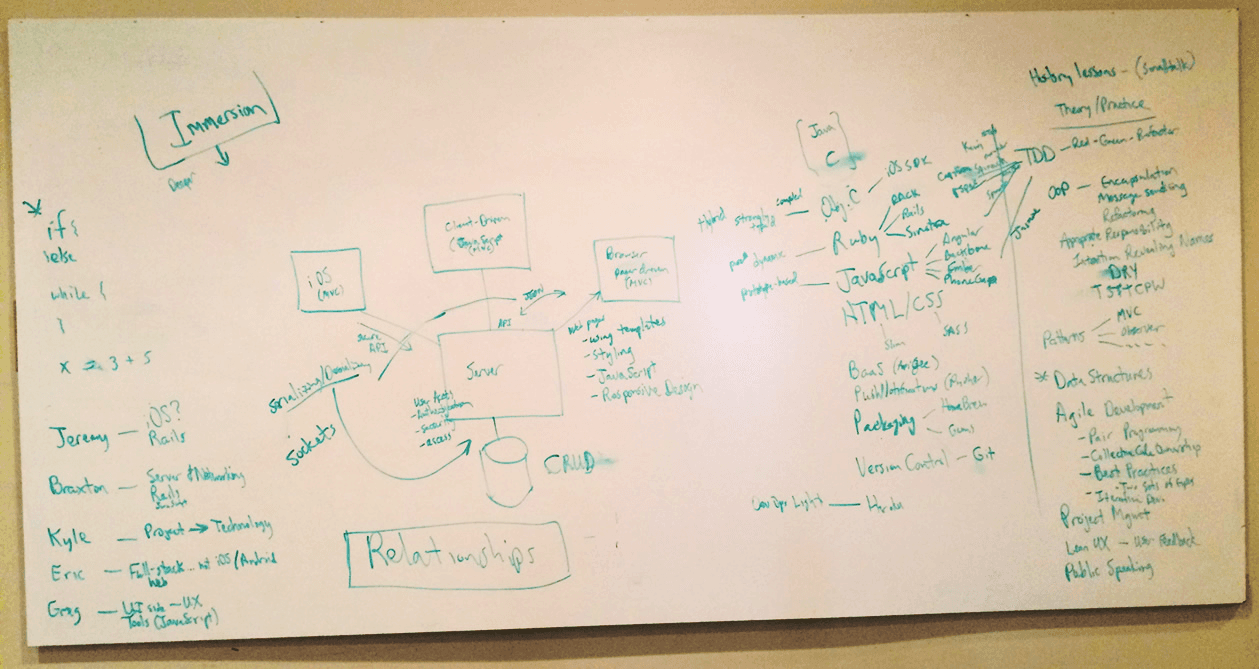 Immersion
Deeper
if {
}else
while {
}
x = 3 + 5
Jeremy — iOS?
Rails
Braxton — Server & Networking
Rails
JavaScript
Kyle — Project → Technology
Eric — Full-stack... not iOS/Android
Web
Greg — UI side — UX
Tools (JavaScript)
iOS
(MVC)
Client-Driven
(JavaScript
MVC)
Browser
page-driven
(MVC)
JSON
API
Secure
API
Server
User Auth
- Authentication
- Security
- access
Serializing/Deserializing
Sockets
CRUD
Relationships
Web pages
- using templates
- Styling
- JavaScript
- Responsive Design
Java
C
Obj. C — iOS SDK
Hybrid
strongly typed
compiled
Ruby
RACK
Rails
Sinatra
pure dynamic
JavaScript
Angular
Backbone
Ember
PhoneGap
prototype-based
HTML/CSS
Slim
SASS
BaaS
Push Notifications
Packaging
HomeBrew
Gems
Version Control — Git
DevOps Light — Heroku
History lessons — (Smalltalk)
Theory/Practice
TDD — Red-Green-Refactor
Kiwi
Rspec
Jasmine
OOP — Encapsulation
Message sending
Refactoring
Appropriate Responsibility
Intention Revealing Names
DRY
TSTTCPW
Patterns
MVC
Observer
* Data Structures
Agile Development
- Pair Programming
- Collective Code Ownership
- Best Practices
- Two Sets of Eyes
- Iterative Dev.
Project Mgmt
Lean UX — User Feedback
Public Speaking